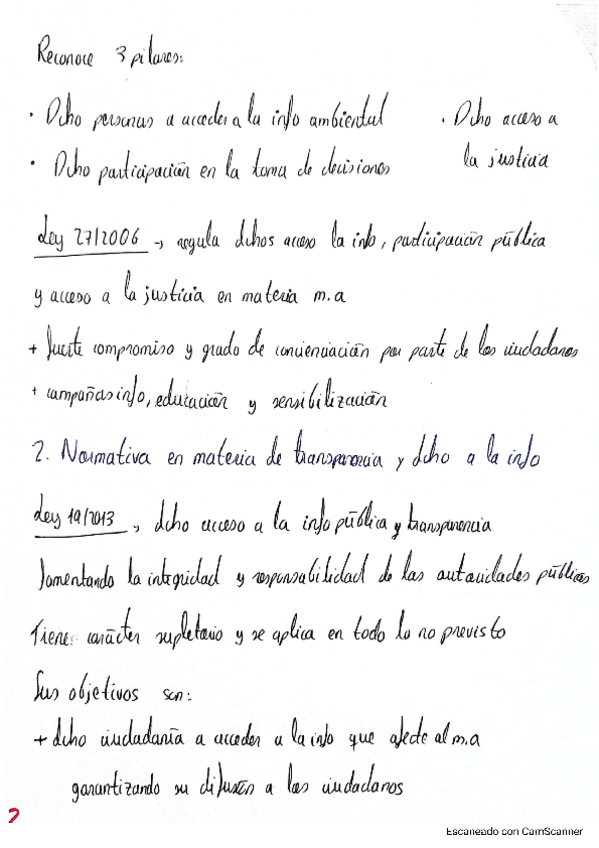 Reconoce 3 pilares:
· Dcho personas a acceder a la info ambiental
· Dcho acceso a la justicia
· Dcho participación en la toma de decisiones
Ley 27/2006 → regula dchos acceso la info, participación pública
y acceso a la justicia en materia m.a
+ fuerte compromiso y grado de concienciación por parte de los ciudadanos
+ campañas info, educación y sensibilización
2. Normativa en materia de transparencia y dcho a la info
Ley 19/2013 → dcho acceso a la info pública y transparencia
fomentando la integridad y responsabilidad de las autoridades públicas
Tiene: carácter supletorio y se aplica en todo lo no previsto
Sus objetivos son:
+ dcho ciudadanía a acceder a la info que afecte al m.a
garantizando su difusión a los ciudadanos
2
Escaneado con CamScanner